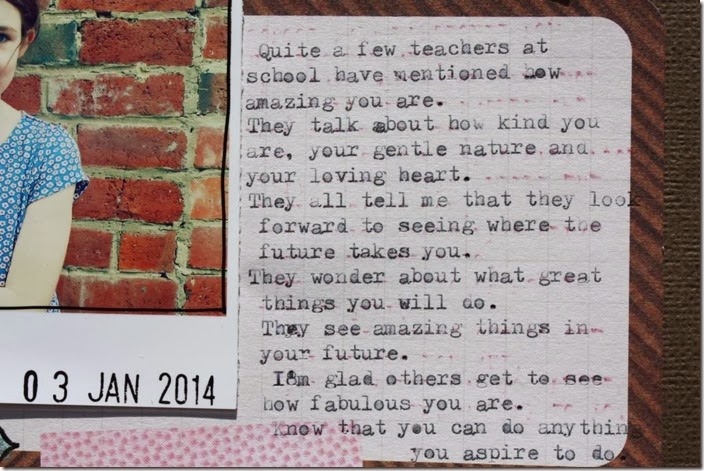 Quite a few teachers at
school have mentioned how
amazing you are.
They talk about how kind you
are, your gentle nature and
your loving heart.
They all tell me that they look
forward to seeing where the
future takes you.
They wonder about what great
things you will do.
They see amazing things in
your future.
I8m glad others get to see
how fabulous you are.
Know that you can do anything
you aspire to do.
03 JAN 2014